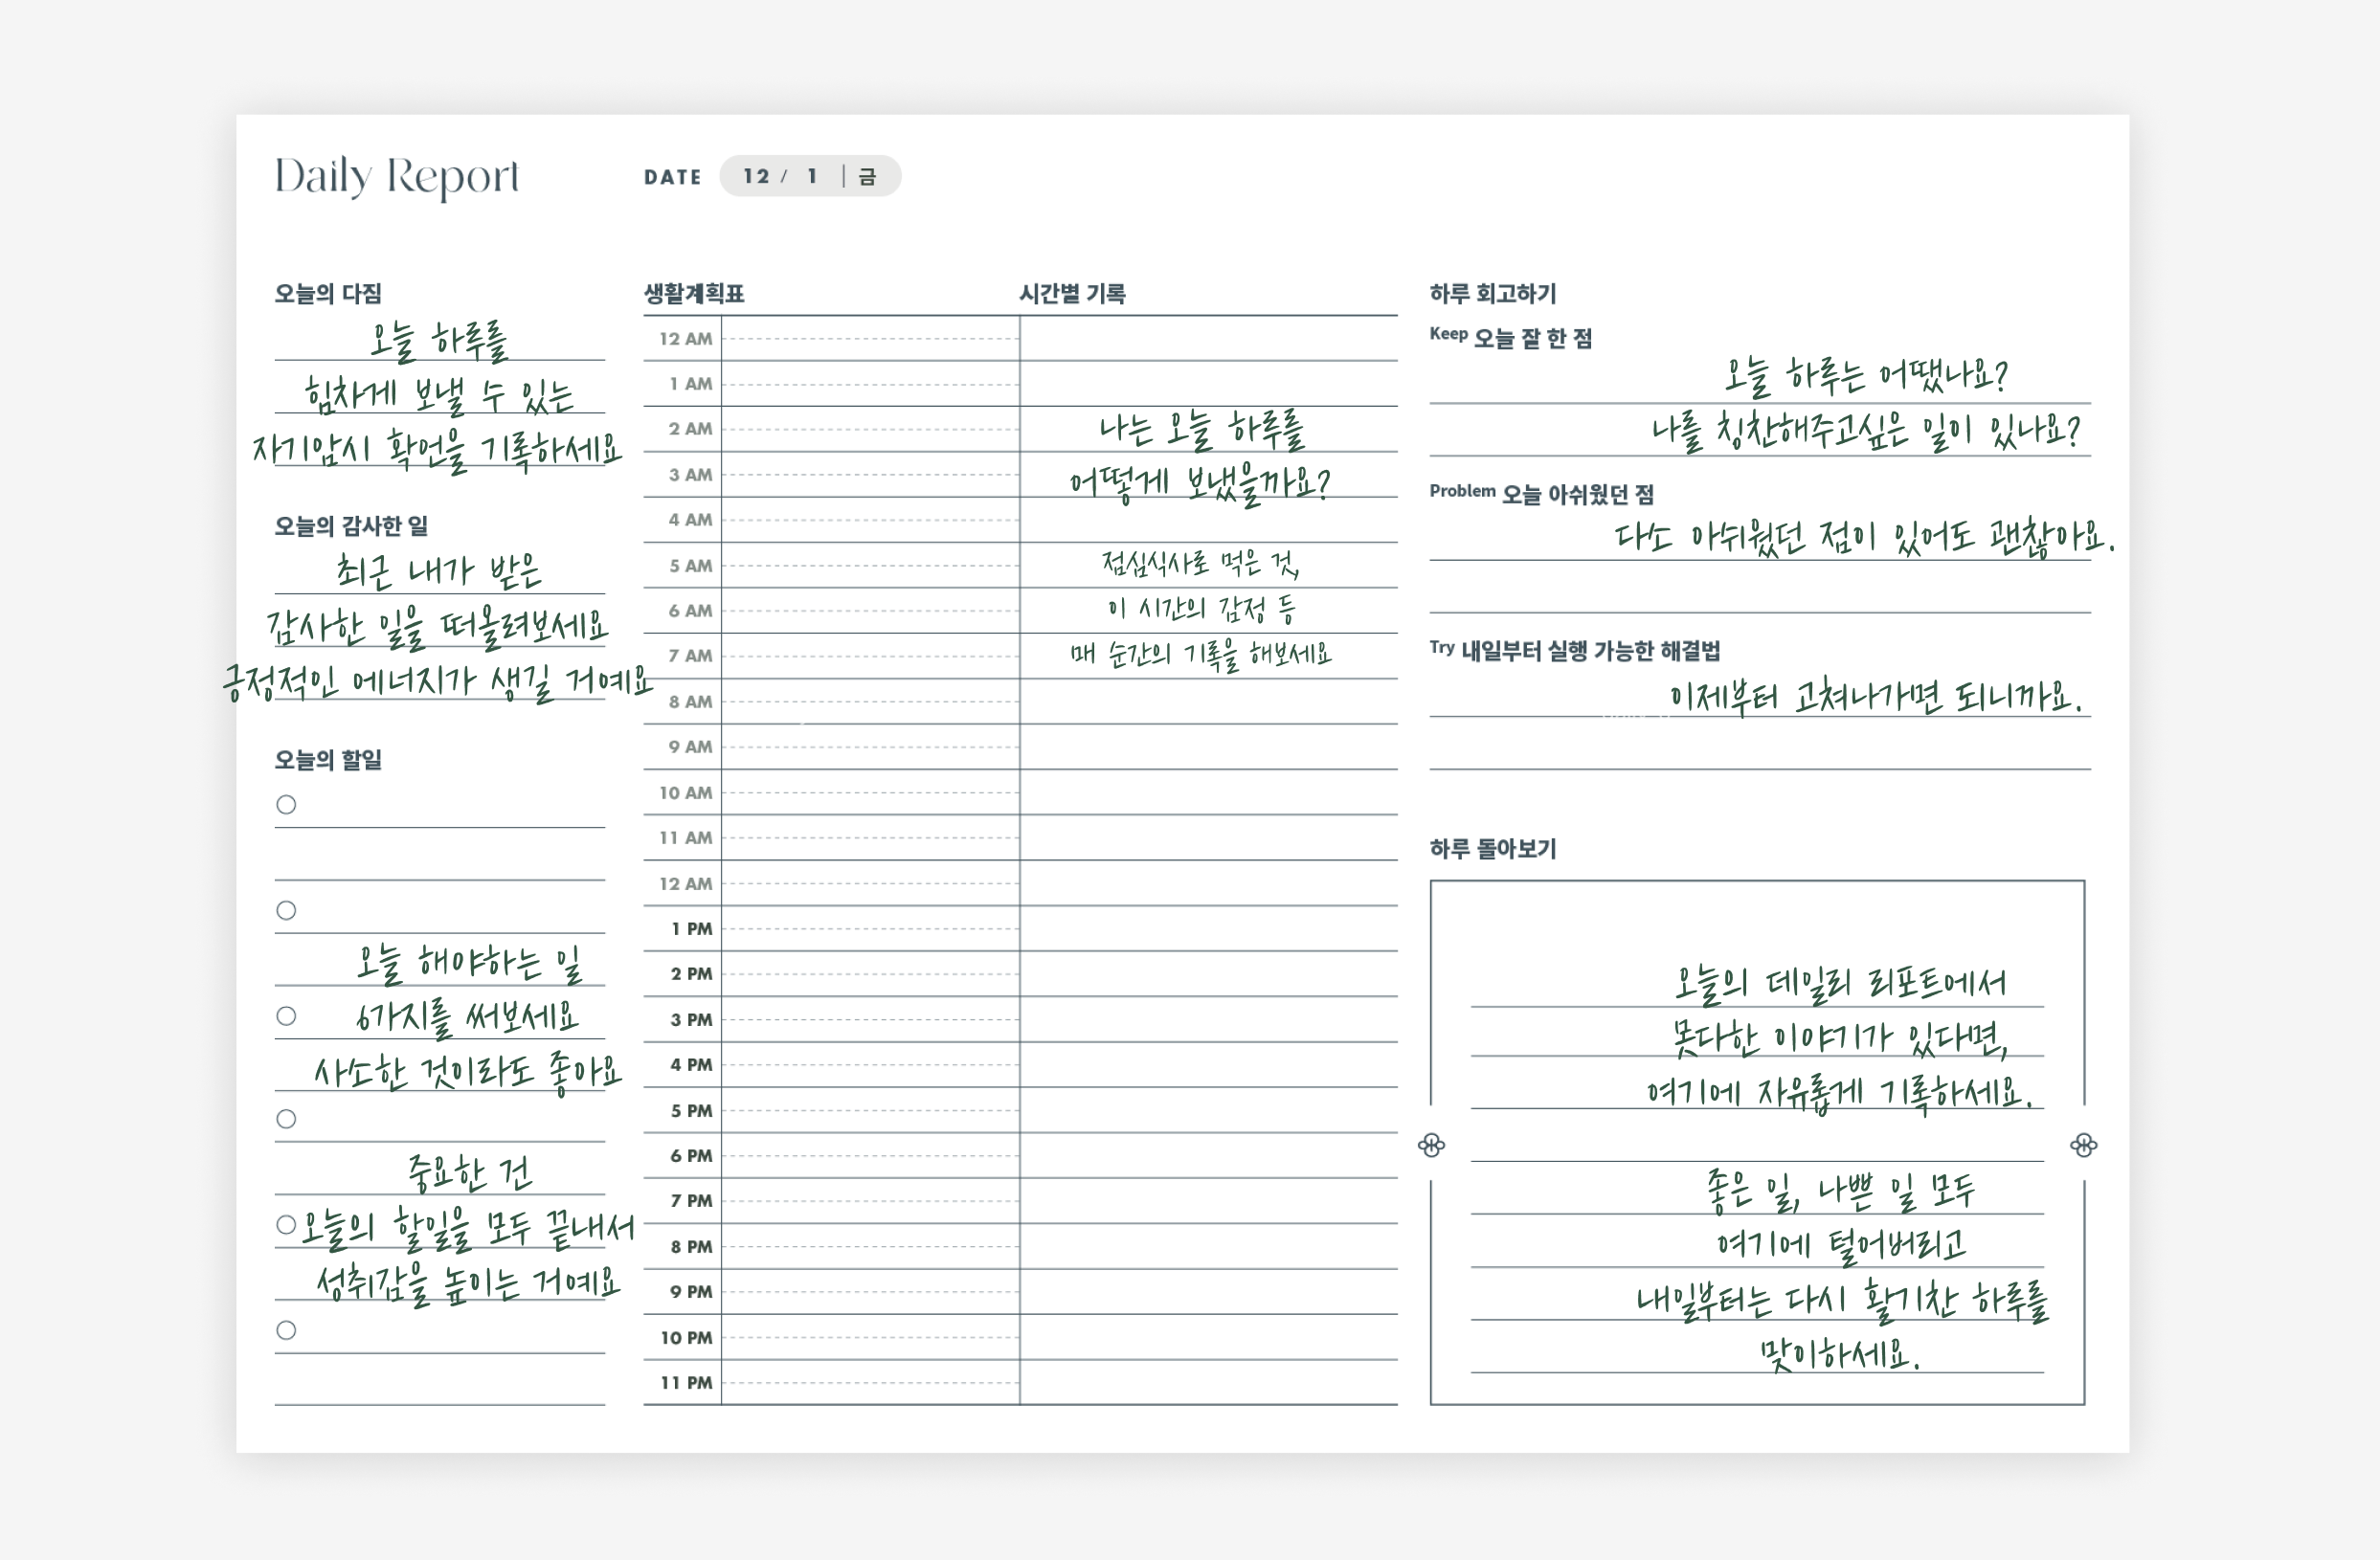 Daily Report
DATE 12 / 1 | 금
오늘의 다짐
오늘 하루를
힘차게 보낼 수 있는
자기암시 확언을 기록하세요
오늘의 감사한 일
최근 내가 받은
감사한 일을 떠올려보세요
긍정적인 에너지가 생길 거예요
오늘의 할일
오늘 해야하는 일
6가지를 써보세요
사소한 것이라도 좋아요
중요한 건
오늘의 할일을 모두 끝내서
성취감을 높이는 거예요
생활계획표
12 AM
1 AM
2 AM
3 AM
4 AM
5 AM
6 AM
7 AM
8 AM
9 AM
10 AM
11 AM
12 AM
1 PM
2 PM
3 PM
4 PM
5 PM
6 PM
7 PM
8 PM
9 PM
10 PM
11 PM
시간별 기록
나는 오늘 하루를
어떻게 보냈을까요?
점심식사로 먹은 것,
이 시간의 감정 등
매 순간의 기록을 해보세요
하루 회고하기
Keep 오늘 잘 한 점
오늘 하루는 어땠나요?
나를 칭찬해주고싶은 일이 있나요?
Problem 오늘 아쉬웠던 점
다소 아쉬웠던 점이 있어도 괜찮아요.
Try 내일부터 실행 가능한 해결법
이제부터 고쳐나가면 되니까요.
하루 돌아보기
오늘의 데일리 리포트에서
못다한 이야기가 있다면,
여기에 자유롭게 기록하세요.
좋은 일, 나쁜 일 모두
여기에 털어버리고
내일부터는 다시 활기찬 하루를
맞이하세요.